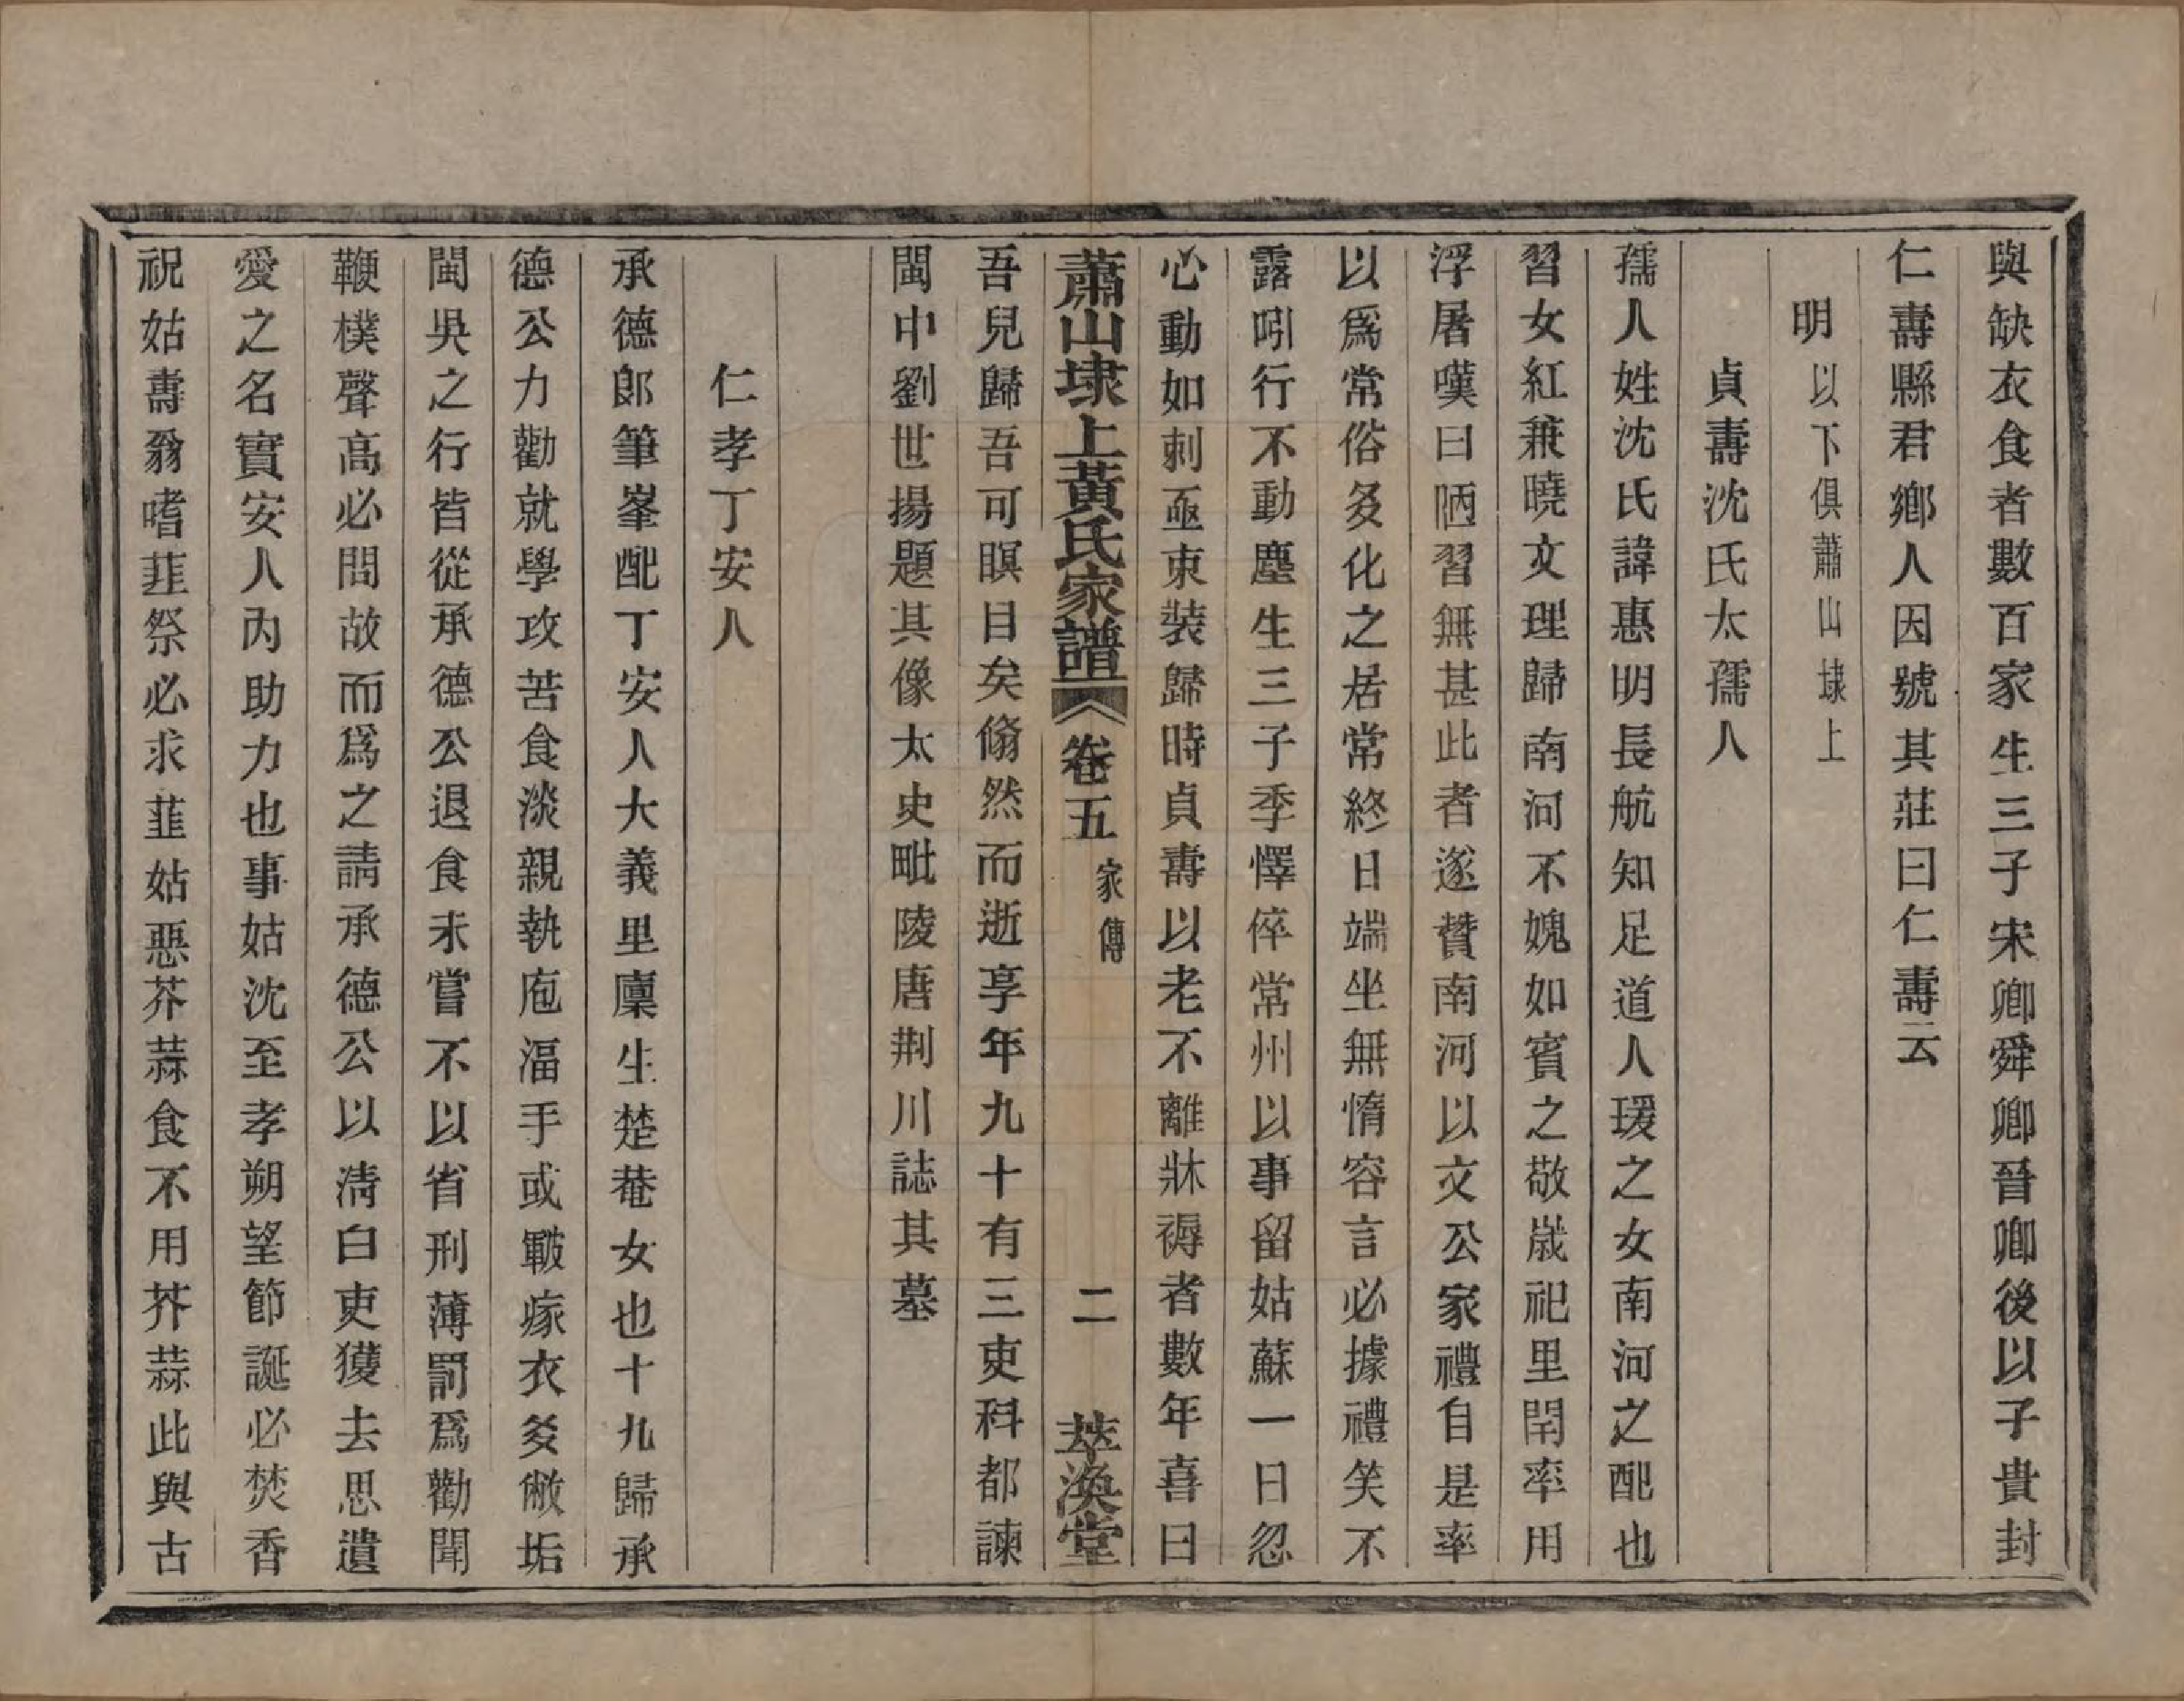 與缺衣食者數百家生三子宋卿舜卿晉卿後以子貴封
仁壽縣君鄉人因號其莊曰仁壽云
明以下俱蕭山埭上
貞壽沈氏太孺人
孺人姓沈氏諱惠明長航知足道人瑗之女南河之配也
習女紅兼曉文理歸南河不媿如賓之敬歲祀里閈率用
浮屠嘆曰陋習無甚此者遂贊南河以文公家禮自是率
以爲常俗多化之居常終日端坐無惰容言必據禮笑不
露哂行不動塵生三子季懌倅常州以事留姑蘇一日忽
心動如刺亟束裝歸時貞壽以老不離牀褥者數年喜曰
蕭山埭上黃氏家譜 卷五 家傳 二 萃渙堂
吾兒歸吾可瞑目矣翛然而逝享年九十有三吏科都諫
閩中劉世揚題其像太史毗陵唐荆川誌其墓
仁孝丁安人
承德郎筆峯配丁安人大義里廩生楚菴女也十九歸承
德公力勸就學攻苦食淡親執庖湢手或皸瘃衣多敝垢
閩吳之行皆從承德公退食未嘗不以省刑薄罰爲勸聞
鞭樸聲高必問故而爲之請承德公以清白吏獲去思遺
愛之名實安人內助力也事姑沈至孝朔望節誕必焚香
祝姑壽翁嗜韮祭必求韮姑惡芥蒜食不用芥蒜此與古